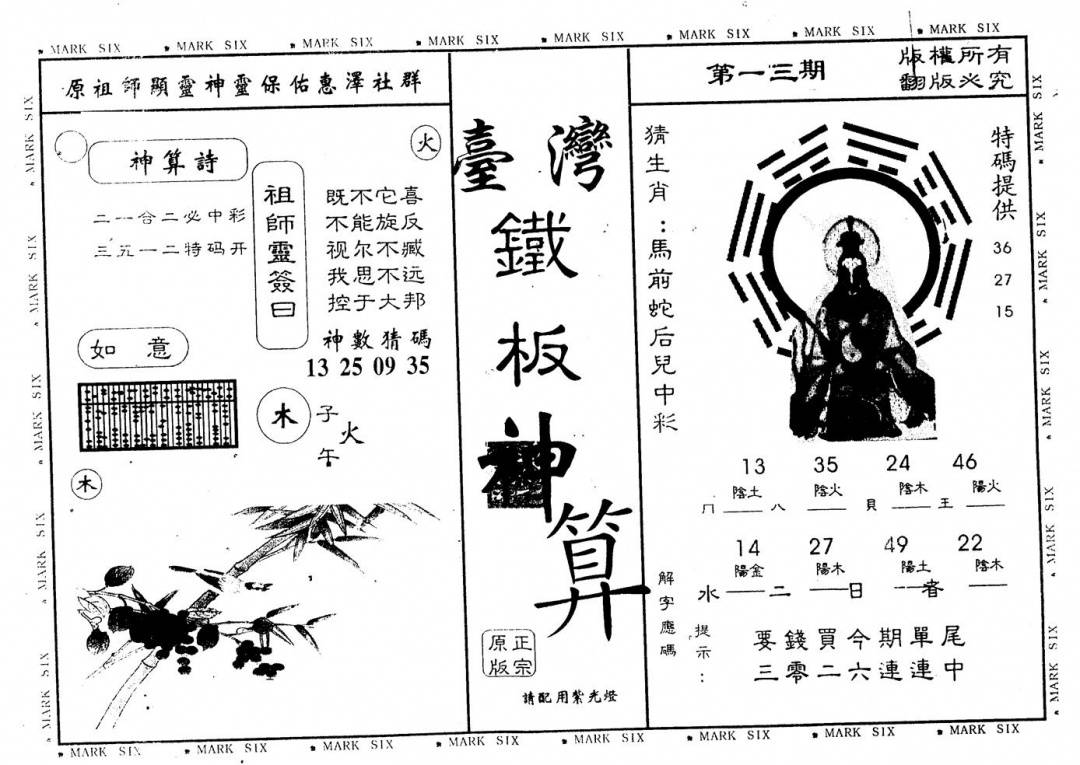 MARK SIX MARK SIX MARK SIX MARK SIX MARK SIX MARK SIX MARK SIX MARK SIX
原祖師顯靈神靈保佑惠澤社群
火
神算詩
二一合二必中彩
三五一二特码开
祖師靈簽曰
既不它喜
不能旋反
视尔不臧
我思不远
控于大邦
神數猜碼
13 25 09 35
如意
木
子
火
午
木
臺灣
鐵板神算
正宗
原版
請配用紫光燈
第一三期
版權所有
翻版必究
猜生肖：馬前蛇后兒中彩
特碼提供
36
27
15
13 35 24 46
陰土 陰火 陰木 陽火
冂 八 貝 王
14 27 49 22
陽金 陽木 陽土 陰木
水 二 日 者
解字應碼
提示：
要錢買今期單尾
三零二六連連中
MARK SIX MARK SIX MARK SIX MARK SIX MARK SIX MARK SIX MARK SIX MARK SIX
MARK SIX MARK SIX MARK SIX MARK SIX MARK SIX
MARK SIX MARK SIX MARK SIX MARK SIX MARK SIX